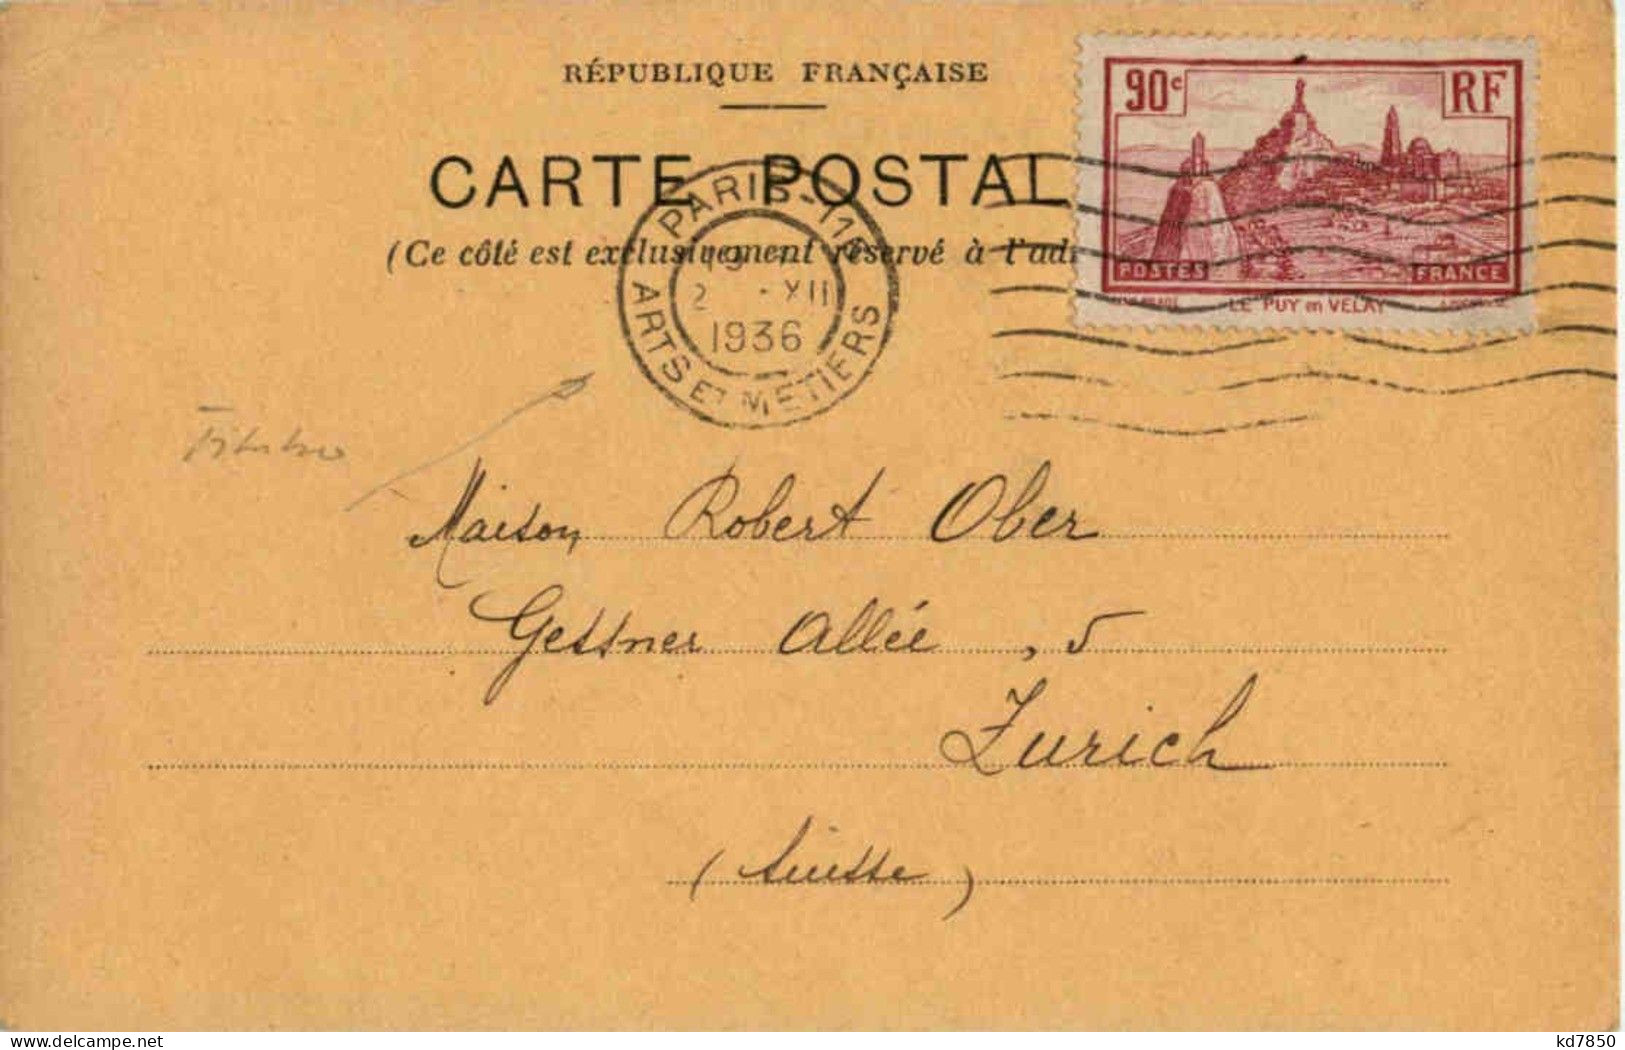 RÉPUBLIQUE FRANÇAISE
90c RF
CARTE POSTAL
(Ce côté est exclusivement réservé à l'adr
POSTES FRANCE
LE PUY en VELAY
PARIS-11
19
2 · XII
1936
ARTS ET METIERS
Maison Robert Ober
Gessner Allée, 5
Zurich
(Suisse)
kd7850